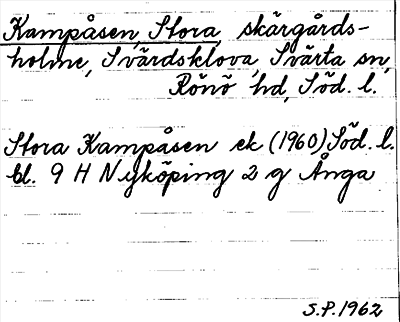 Kampåsen, Stora, skärgårds-
holme, Svärdsklova, Svärta sn,
Rönö hd, Söd. l.
Stora Kampåsen ek (1960) Söd. l.
bl. 9 H Nyköping 2 g Ånga
S.P. 1962